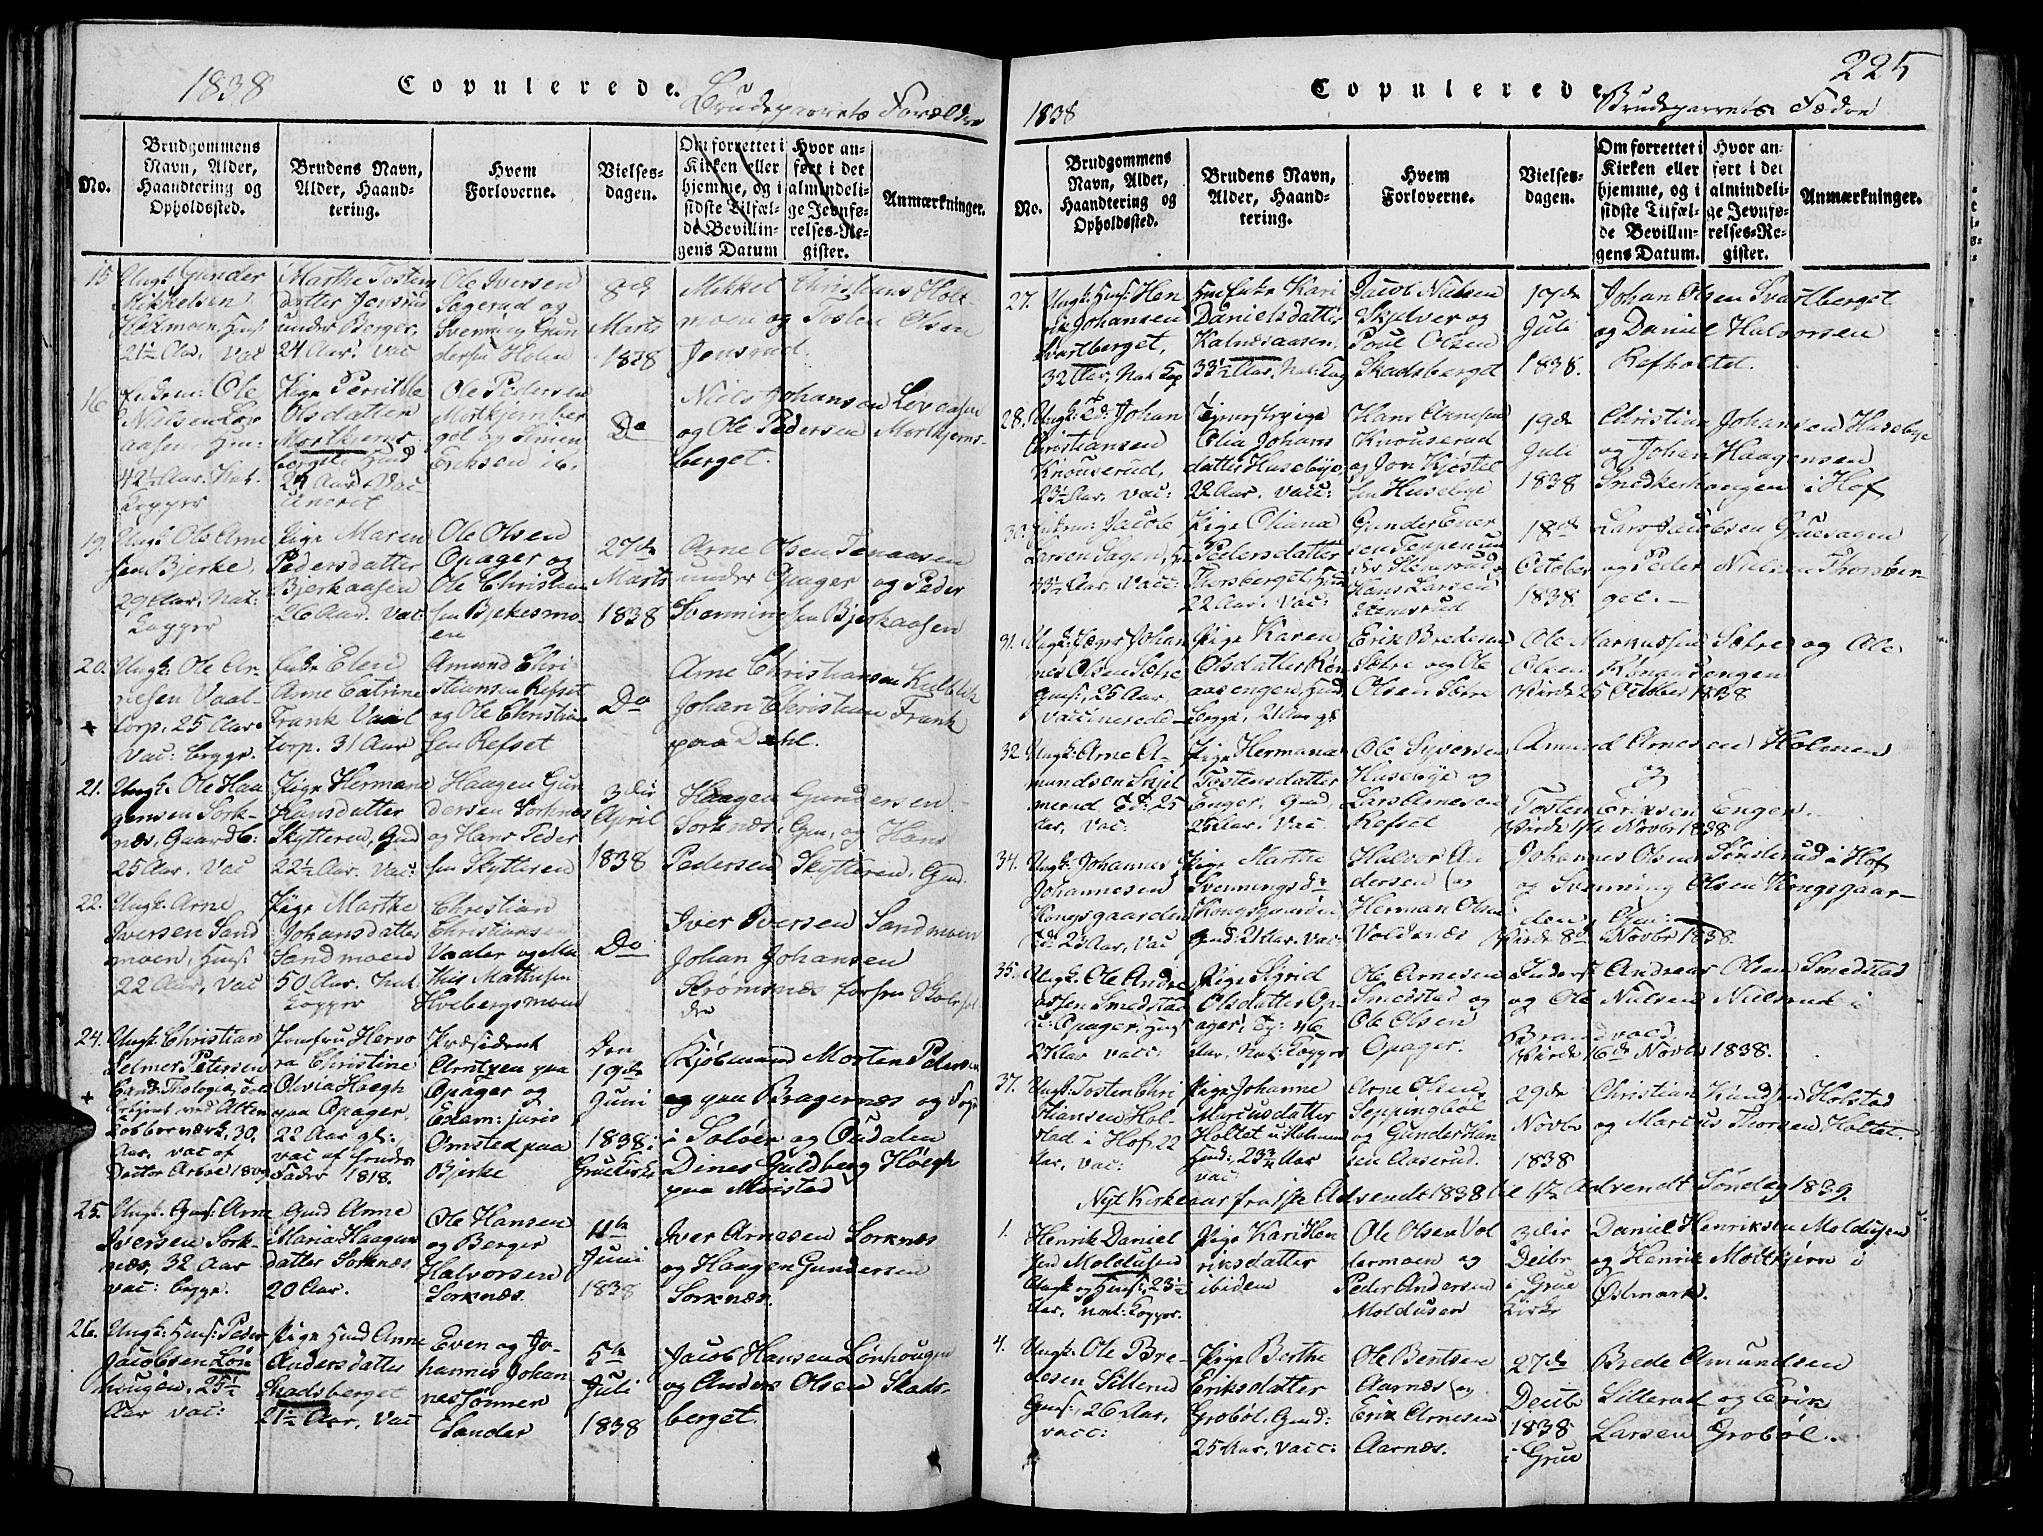 1838
Copulerede.
Brudeparrets Forældre
No.
Brudgommens Navn, Alder, Haandtering og Opholdssted.
Brudens Navn, Alder, Haandtering.
Hvem Forloverne.
Vielsesdagen.
Om forrettet i Kirken eller hjemme, og i sidste Tilfælde Bevillingens Datum
Hvor anført i det almindelige Jevnførelses-Register.
Anmærkninger.
15
Ungk: Gunder
Mikkelsen
21½ Aar, vac
Marthe Tosten
datter Jonsrud
under Berger,
24 Aar, vac
Ole Iversen
Sagerud og
Svenning Gun
dersen Holen
8de
Marts
1838
Mikkel Christians Holt
moen og Tosten Olsen
Jonsrud.
16
Ole
Nielsen Lev
aasen
42½ Aar, Nat.
Kopper
Pige Pernille
Olsdatter
Mortkjerns
berget
Ole Pedersen
Mortkjernber
get og Simen
Eriksen ib.
Do
Niels Johansen Levaasen
og Ole Pedersen Mortkjerns
berget.
19.
Ungk: Ole Arne
sen Bjerke,
29 Aar, Nat:
Kopper
Pige Maren
Pedersdatter
Bjerkaasen
26 Aar, Vac
Ole Olsen
Opager og
Ole Christian
sen Bjekesmo
en
27de
Marts
1838
Arne Olsen
under Opager og Peder
Svenningsen Bjerkaasen
20.
Ungk: Ole Ar
nesen Vaal
torp, 25 Aar
vac: begge.
+
Enke Elen
Arne Catrine
Frank Vaal
torp. 31 Aar
Amund Chri
stiansen Refset
og Ole Christian
sen Refset
Do
Arne Christiansen
Johan Christian Frank
paa Dahl.
21.
Ungk: Ole Haa
gensen Sork
næs, Gaardb:
25 Aar. Vac
Pige Hermane
Hansdatter
Skytteren, Gud
22½ Aar. Vac:
Haagen Gun
dersen Sorknæs
og Hans Peder
sen Skytteren
3die
April
1838
Haagen Gundersen
Sorknæs, Gm, og Hans
Pedersen Skytteren, Gmd.
22.
Ungk: Arne
Iversen Sand
moen, Huusf
22 Aar, vac
Pige Marthe
Johansdatter
Sandmoen
50 Aar, Nat.
Kopper
Christian
Christiansen
Vaaler og Ma
this Mathisen
Hvebergsmoen
Do
Iver Iversen Sandmoen
Johan Johansen
Strømsnæs
24.
Ungk: Christian
Selmer Petersen
Cand: Theologiæ
+
30.
Aar, vac af
Doctor
Jomfru
Christine
Olivia Høegh
paa Opager,
22 Aar gl:
vac af
Fader 1818.
Præsident
Arntzen paa
Opager og
Exam: juris
Omsted paa
Bjerke
Den
19de
Juni
1838:
Gruekirke
Kjøbmand Morten Petersen
paa Bragernæs og Fogd
i Soløer og Oudalen
Dines Guldberg Høegh
paa Mørstad
25.
Ungk: Gmf: Arne
Iversen Sork
næs, 32 Aar
vac: begge.
Gmd Anne
Maria Haagens
datter Sorknæs
20 Aar.
Ole Hansen
og Berger
Halvorsen
Sorknæs.
4de
Juni
1838
Iver Arnesen Sorknæs
og Haagen Gundersen
Sorknæs.
26.
Ungk: Husf: Peder
Jacobsen Løn
hougen, 25½
Aar vac:
Pige Hmd Anne
Andersdatter
Skadsberget
21½ Aar, Vac
Even og Jo
hannes Johan
nessønner
Sander
5te
Juli
1838
Jacob Hansen Lønhougen
og Anders Olsen Skads
berget.
225
1838
Copulerede.
Brudeparrets Fædre
No.
Brudgommens Navn, Alder, Haandtering og Opholdssted.
Brudens Navn, Alder, Haandtering.
Hvem Forloverne.
Vielsesdagen.
Om forrettet i Kirken eller hjemme, og i sidste Tilfælde Bevillingens Datum.
Hvor anført i det almindelige Jevnførelses-Register.
Anmærkninger.
27.
Ungk: Husf: Hen
rik Johansen
Svartberget,
32 Aar, Nat Kop
Enke Kari
Danielsdatter
Kalnæsaasen,
33½ Aar, Nat: Kop
Jacob Nielsen
Skjelver og
Poul Olsen
Skadsberget
17de
Juli
1838.
Johan Olsen Svartberget
og Daniel Halvorsen
Refholtet.
28.
Ungk: Johan
Christiansen
Knouserud,
23½ Aar, vac:
Tjenestepige
Olia Johans
datter Husebye,
22 Aar. Vacc:
Hans Arnesen
Knouserud
og Jon Kjøstel
sen Husebye
19de
Juli
1838
Christian Johansen Husebye
og Johan Haagensen
Snedkerhaugen i Hof
Jacob
Larsen Sagen,
33½ Aar, Vac:
Pige Oliana
Pedersdatter
Thorsberget,
22 Aar, Vac:
Gunder Ener
sen Teppen un
der Stemsrud
Hans Larsen
Stemsrud
18de
October
1838
Lars Jacobsen Gruesagen
og Peder Nielsen Thorsber
get.
31.
Ungk: Johan
nes Olsen Sætre
Gmsf, 25 Aar
vaccinerede
Pige Karen
Olsdatter Røn
aasengen, Hmd
begge, 21 Aar gl
Erik Bredesen
Sætre og Ole
Olsen Sætre
Ole Markussen Sætre og Ole
Olsen Rønaasengen
Viede 25 October 1838
32.
Ungk: Arne A
mundsen Skjel
merud 25
Aar, vac:
Pige Hermana
Tostensdatter
Enger, Gmd,
25 Aar. Vac
Ole Syversen
Husebye og
Lars Arnesen
Refset
Amund Arnesen Holmen
og
Tosten Eriksen Enger.
Viede 1ste Novbr 1838
34.
Ungk: Johannes
Johannesen
Kongsgaarden
23 Aar, Vac
Pige Marthe
Svenningsdr
Kongsgaarden
Gmd 21 Aar. Vac:
Halvor An
dersen og
Herman Olsen
Voldnæs
Johannes Olsen Sønsterud i Hof
og Svenning Olsen Kongsgaar
den Gm:
Viede 8de Novbr 1838.
35.
Ungk: Ole Andre
assen Smedstad
u: Opager, Huusf
24 Aar vacc:
Pige Sigrid
Olsdatter Op
ager, Tj: 46
Aar, Nat: Kopper
Ole Arnesen
Smedstad og
Ole Olsen
Opager.
Inderst Andreas Olsen Smedstad
og Ole Nielsen Nielsrud i
Brandvold
Viede 16de Novbr 1838.
37.
Ungk: Tosten Chri
stiansen Hol
stad i Hof 22
Aar, Vac:
Pige Johanne
Marcusdatter
Holtet u: Holmen
Gmd:, 23¾ Aar
vac:
Arne Olsen
Seppingbøl
og Gunder Han
sen Aaserud.
29de
Novbr
1838
Christian Knudsen Holstad
og Marcus Thorsen Holtet.
Nyt Kirkeaar fra 1ste Advendt 1838 til 1ste Advendt Søndag 1839.
1.
Henrik Daniel
sen Moldusen
Ungk og Husf:, 23½
Aar, nat: Kopper.
Pige Kari Hen
riksdatter
ibidem
Ole Olsen Vol
dermoen og
Peder Andersen
Moldusen
3die
Decbr
i Grue
Kirke
Daniel Henriksen Moldusen
og Henrik Moltkjern i
Østmark.
4.
Ungk: Ole Bre
desen Sillerud
Gmsf:, 26 Aar,
vacc:
Pige Berthe
Eriksdatter
Grobøl, Gmd:
25 Aar, Vacc:
Ole Bentsen
Aarnæs og
Erik Arnesen
Aarnæs.
27de
Decbr
1838
i Grue
Brede Amundsen
Sillerud og Erik
Larsen Grobøl.